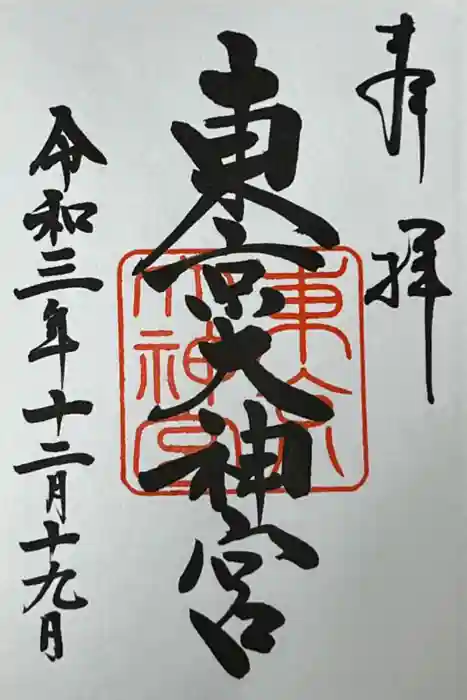 奉拝
東京大神宮
東京大神宮
令和三年十二月十九日